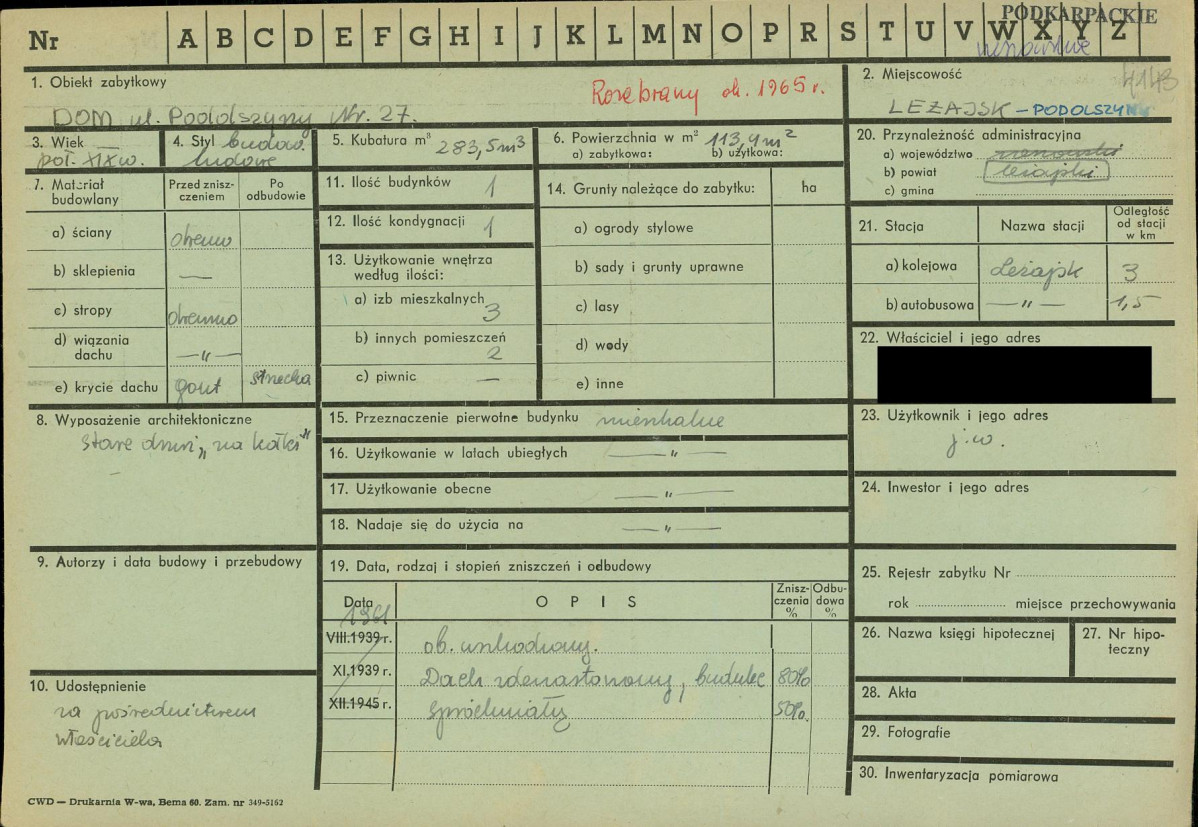 PODKARPACKIE
Nr A B C D E F G H I J K L M N O P R S T U V W X Y Z
rzeszowskie
4143
1. Obiekt zabytkowy
Rozebrany ok. 1965 r.
DOM ul. Podolszyny Nr. 27.
2. Miejscowość
LEŻAJSK – PODOLSZYNY
3. Wiek
poł. XIX w.
4. Styl budow.
ludowe
5. Kubatura m³ 283,5 m³
6. Powierzchnia w m² 113,4 m²
a) zabytkowa: b) użytkowa:
20. Przynależność administracyjna
a) województwo rzeszowskie
b) powiat leżajski
c) gmina
7. Materiał budowlany
Przed zniszczeniem
Po odbudowie
a) ściany drewno
b) sklepienia —
c) stropy drewno
d) wiązania dachu —„—
e) krycie dachu gont strzecha
11. Ilość budynków 1
12. Ilość kondygnacji 1
13. Użytkowanie wnętrza według ilości:
a) izb mieszkalnych 3
b) innych pomieszczeń 2
c) piwnic —
14. Grunty należące do zabytku: ha
a) ogrody stylowe
b) sady i grunty uprawne
c) lasy
d) wody
e) inne
21. Stacja Nazwa stacji Odległość od stacji w km
a) kolejowa Leżajsk 3
b) autobusowa —„— 1,5
22. Właściciel i jego adres
8. Wyposażenie architektoniczne
stare drzwi „na kołki"
15. Przeznaczenie pierwotne budynku mieszkalne
16. Użytkowanie w latach ubiegłych —„—
17. Użytkowanie obecne —„—
18. Nadaje się do użycia na —„—
23. Użytkownik i jego adres
j.w.
24. Inwestor i jego adres
9. Autorzy i data budowy i przebudowy
19. Data, rodzaj i stopień zniszczeń i odbudowy
Data OPIS Zniszczenia % Odbudowa %
VIII.1939 r. ob. uszkodzony.
XI.1939 r. Dach zdewastowany, budulec 80%
XII.1945 r. spróchniały 50%.
10. Udostępnienie
za pośrednictwem
właściciela
25. Rejestr zabytku Nr
rok miejsce przechowywania
26. Nazwa księgi hipotecznej
27. Nr hipoteczny
28. Akta
29. Fotografie
30. Inwentaryzacja pomiarowa
CWD — Drukarnia W-wa, Bema 60. Zam. nr 349-5162